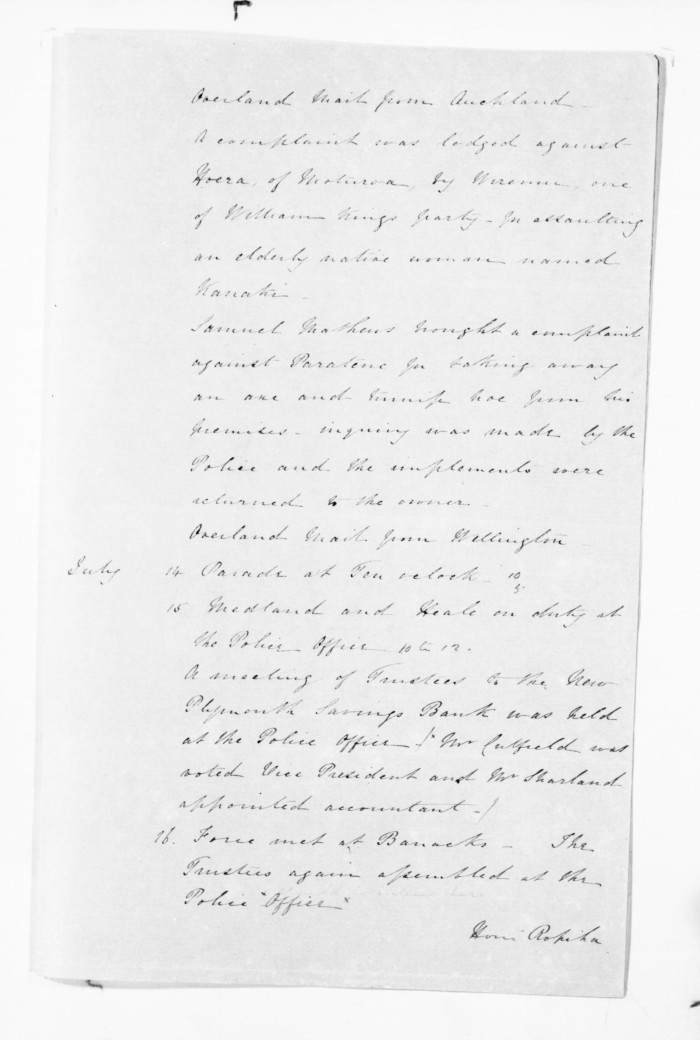 Overland Mail from Auckland -
A complaint was lodged against
Hoera, of Moturoa, by Wiremu, one
of William Kings party - for assaulting
an elderly native woman named
Kanatu -
Samuel Mathews brought a complaint
against Paratene for taking away
an axe and turnip hoe from his
premises - inquiry was made by the
Police and the implements were
returned to the owner -
Overland Mail from Wellington -
July 14 Parade at Ten oclock - 10
15 Medland and Heale on duty at
the Police Office 10 to 12.
A meeting of Trustees to the New
Plymouth Savings Bank was held
at the Police Office - (Mr Cutfield was
voted Vice President and Mr Sharland
appointed accountant -)
16. Force met at Barracks - The
Trustees again assembled at the
Police "Office"
Honi Ropiha